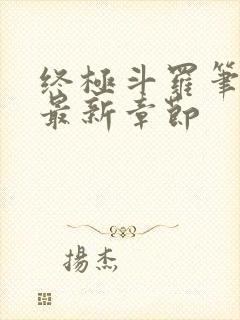 终極斗羅筆
最新章節
揚杰